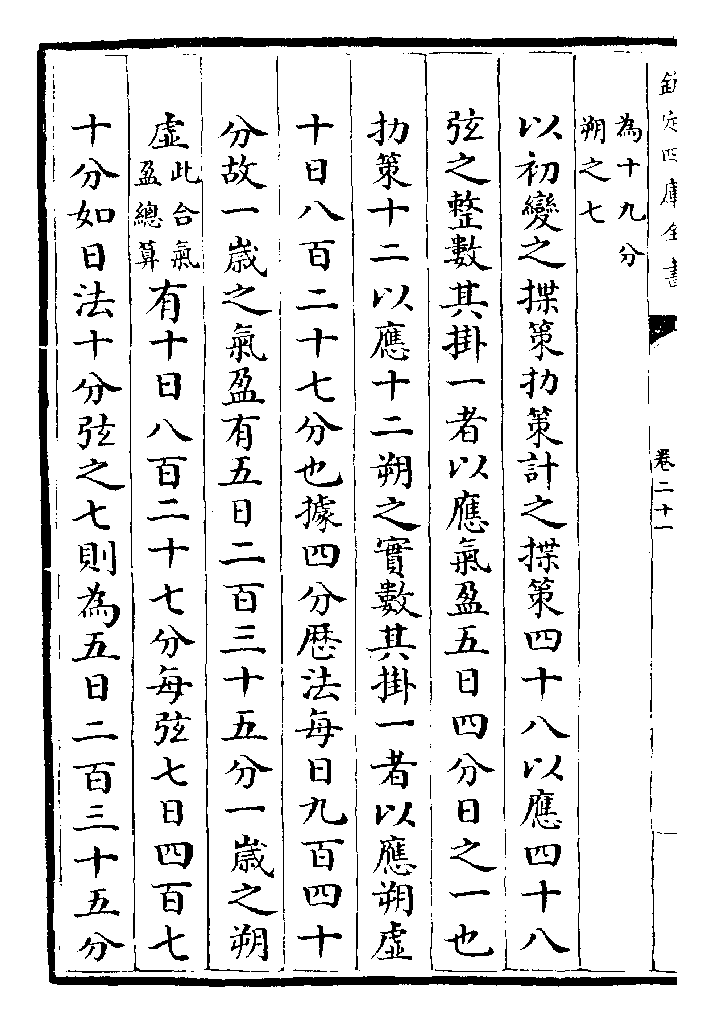 欽定四庫全書
卷二十一
為十九分
朔之七
以初變之揲策扐策計之揲策四十八以應四十八
弦之整數其掛一者以應氣盈五日四分日之一也
扐策十二以應十二朔之實數其掛一者以應朔虛
十日八百二十七分也據四分厯法每日九百四十
分故一歳之氣盈有五日二百三十五分一歳之朔
虛此合氣盈總算有十日八百二十七分每弦七日四百七
十分如日法十分弦之七則為五日二百三十五分